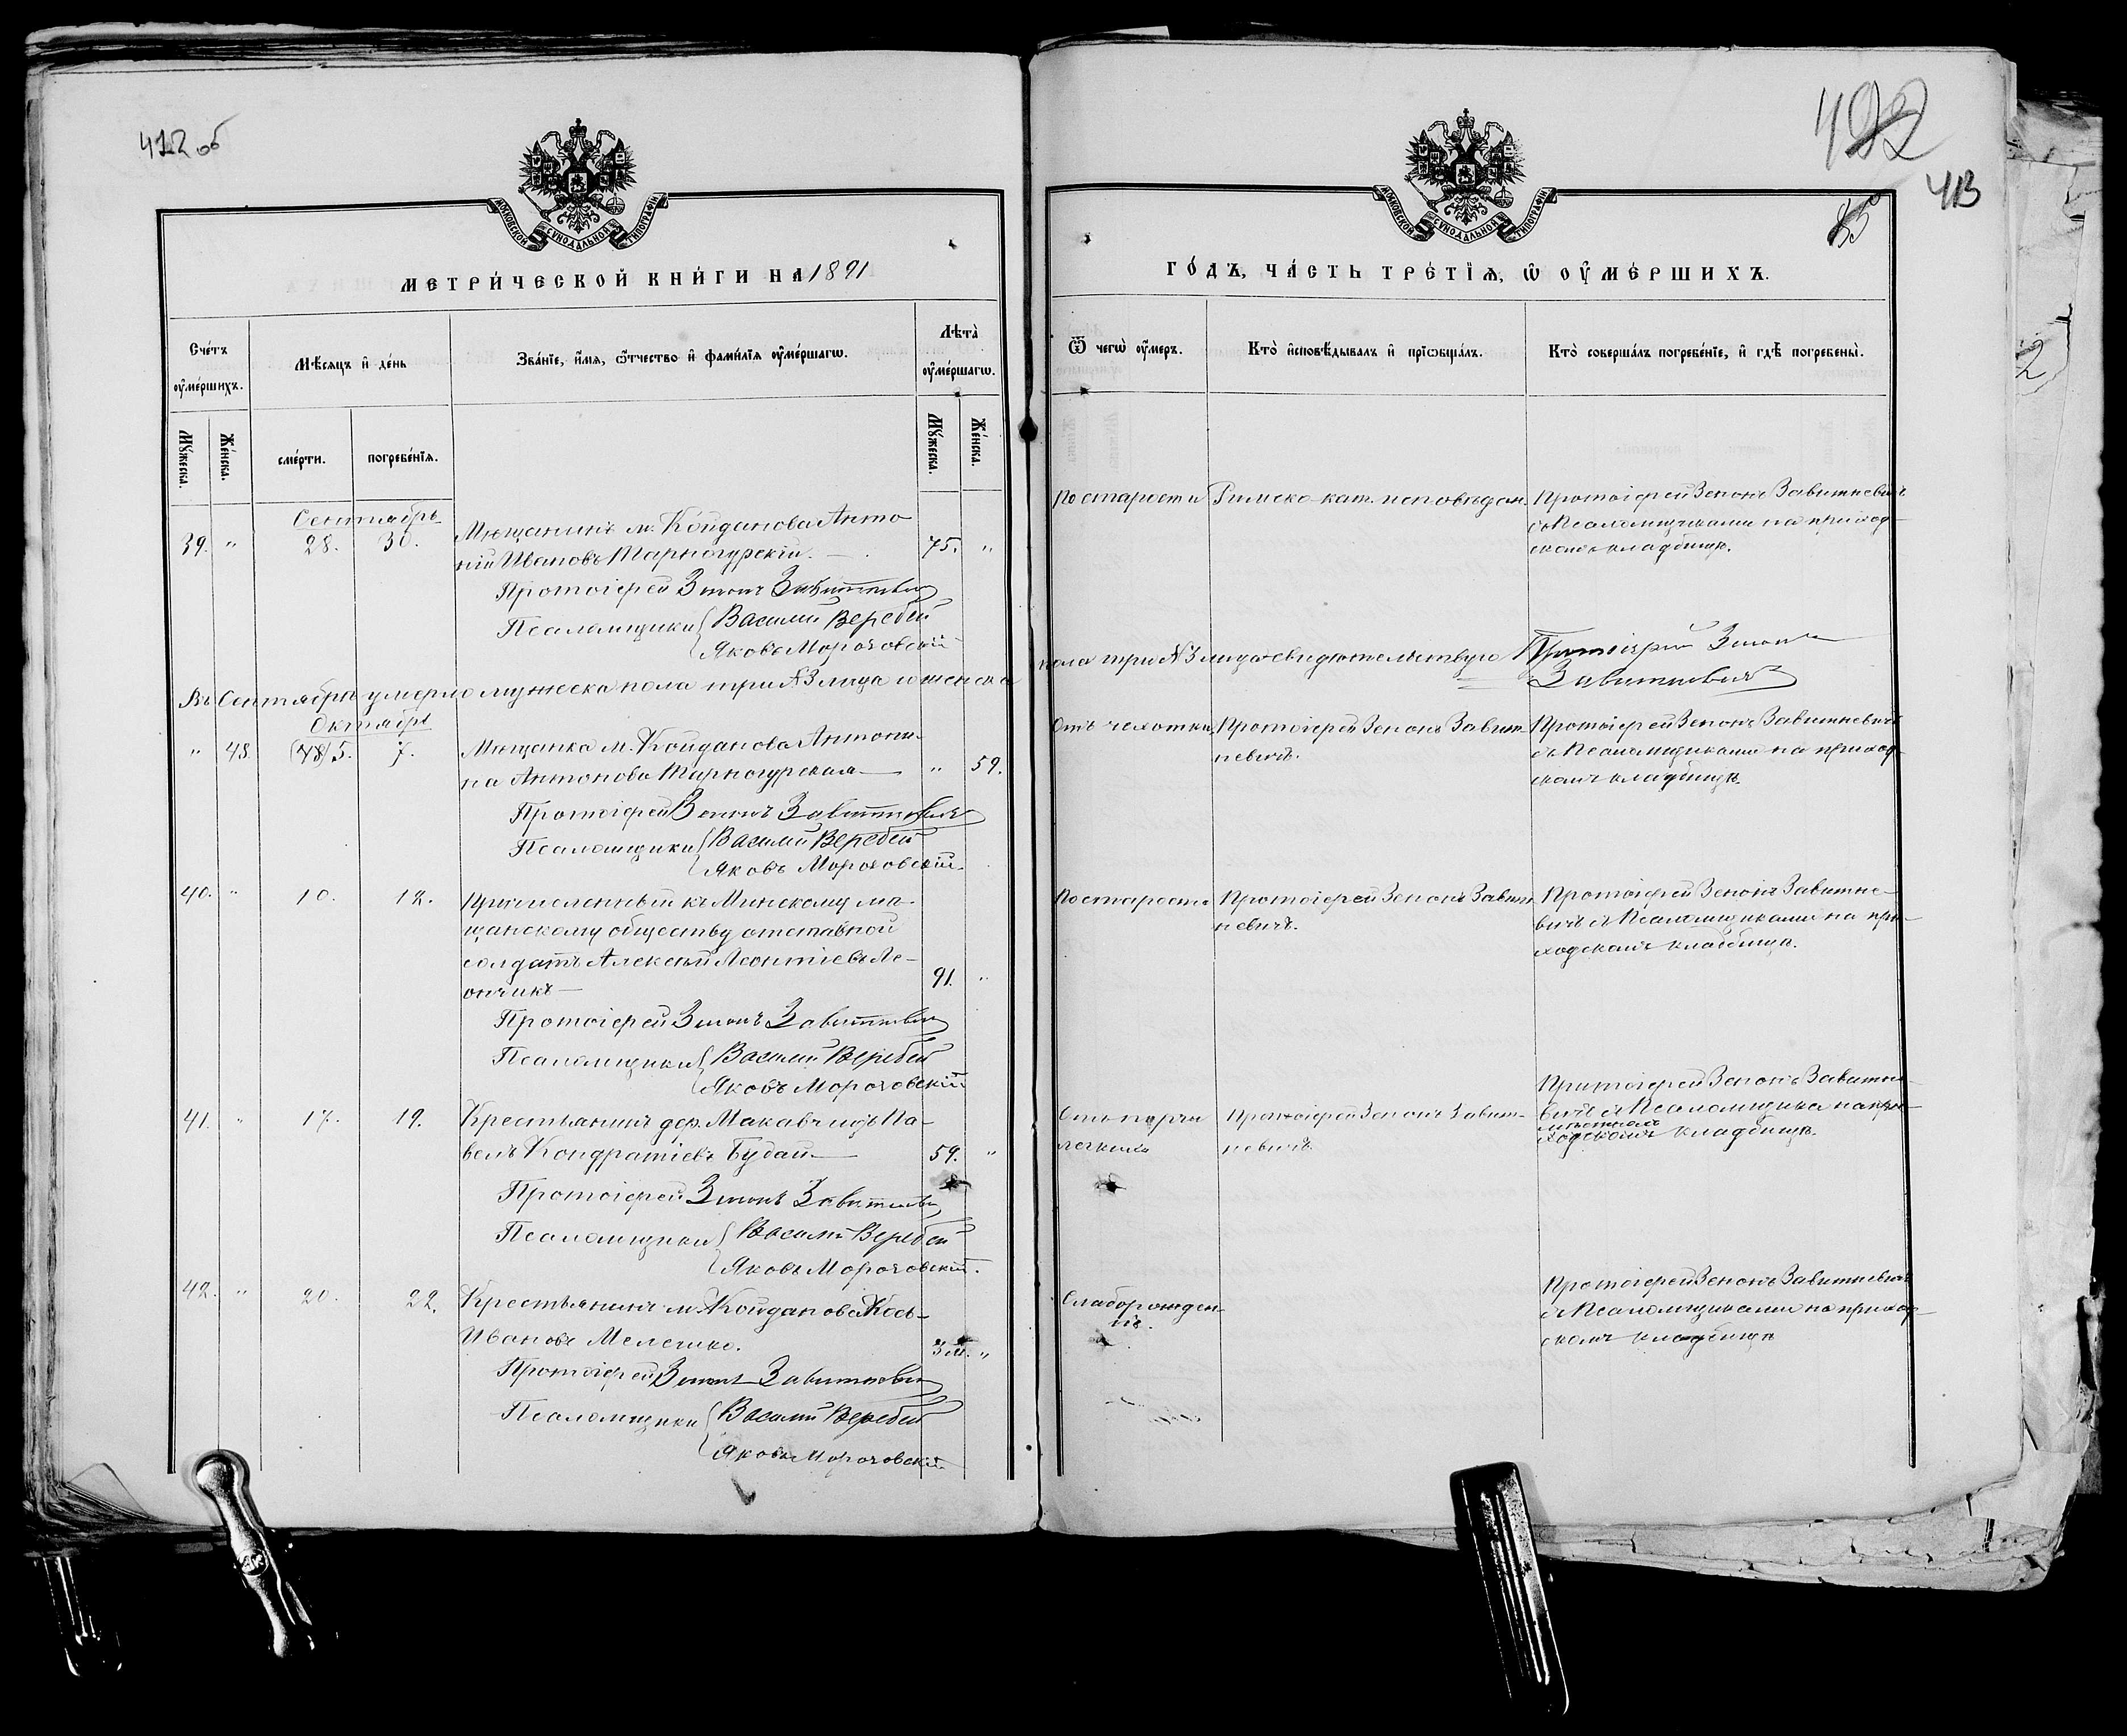 412 об
МОСКОВСКОЙ СѴНОДАЛЬНОЙ ТИПОГРАФІИ
МЕТРИ́ЧЕСКОЙ КНИ́ГИ НА 1891
Счéтъ ᲂу҆мéршихъ.
Мѣ́сяцъ и҆ дéнь
Звáнїе, и҆́мя, ѻ҆́тчество и҆ фами́лїя ᲂу҆мéршагѡ.
Лѣтà ᲂу҆мéршагѡ.
Мꙋ́жеска.
Жéнска.
смéрти.
погребéнїя.
Мꙋ́жеска.
Жéнска.
Сентябрь
39. " 28. 30. Мѣщанинъ м. Койданова Анто
ній Ивановъ Тарногурскій. 75. "
Протоіерей Зенонъ Завитневичъ
Псаломщики Василій Веребей
Яковъ Морозовскій
Въ Сентябрѣ умерло мужеска пола три №3 лица и женска
Октябрь
" 48. (48) 5. 7. Мѣщанка м. Койданова Антони-
на Антонова Тарногурская " 59.
Протоіерей Зенонъ Завитневичъ
Псаломщики Василій Веребей
Яковъ Морозовскій.
40. " 10. 12. Причисленный къ Минскому мѣ-
щанскому обществу отставной
солдатъ Алексѣй Леонтіевъ Ле-
ончикъ 91. "
Протоіерей Зенонъ Завитневичъ
Псаломщики Василій Веребей
Яковъ Морозовскій
41. " 17. 19. Крестьянинъ дер. Макавчицъ Па-
велъ Кондратіевъ Будай 59. "
Протоіерей Зенонъ Завитневичъ
Псаломщики Василій Веребей
Яковъ Морозовскій.
42. " 20. 22. Крестьянинъ м. Койданова
Ивановъ Мелешко. 3 м. "
Протоіерей Зенонъ Завитневичъ
Псаломщики Василій Веребей
Яковъ Морозовскій
413
МОСКОВСКОЙ СѴНОДАЛЬНОЙ ТИПОГРАФІИ
ГÓДЪ, ЧÁСТЬ ТРÉТЇЯ, Ѡ҆ ОУ҆МÉРШИХЪ.
Ѿ чегѡ̀ ᲂу҆́меръ.
Ктò и҆сповѣ́дывалъ и҆ прїѡбщáлъ.
Ктò совершáлъ погребéнїе, и҆ гдѣ̀ погребены̀.
По старости Римско-кат. исповѣдан. Протоіерей Зенонъ Завитневичъ
съ Псаломщиками на приход-
скомъ кладбищѣ.
пола три №3 лица свидѣтельствую Протоіерей Зенонъ
Завитневичъ
Отъ чахотки Протоіерей Зенонъ Завит- Протоіерей Зенонъ Завитневичъ
невичъ. съ Псаломщиками на приход-
скомъ кладбищѣ.
По старости Протоіерей Зенонъ Завит- Протоіерей Зенонъ Завитне-
невичъ. вичъ съ Псаломщиками на при-
ходскомъ кладбищѣ.
Протоіерей Зенонъ Завитне-
Отъ порчи Протоіерей Зенонъ Завит- вичъ съ Псаломщика на при-
легкихъ невичъ. мѣстномъ
ходскомъ кладбищѣ.
Протоіерей Зенонъ Завитневичъ
Слаборожден- съ Псаломщиками на приход-
ія. скомъ кладбищѣ
2